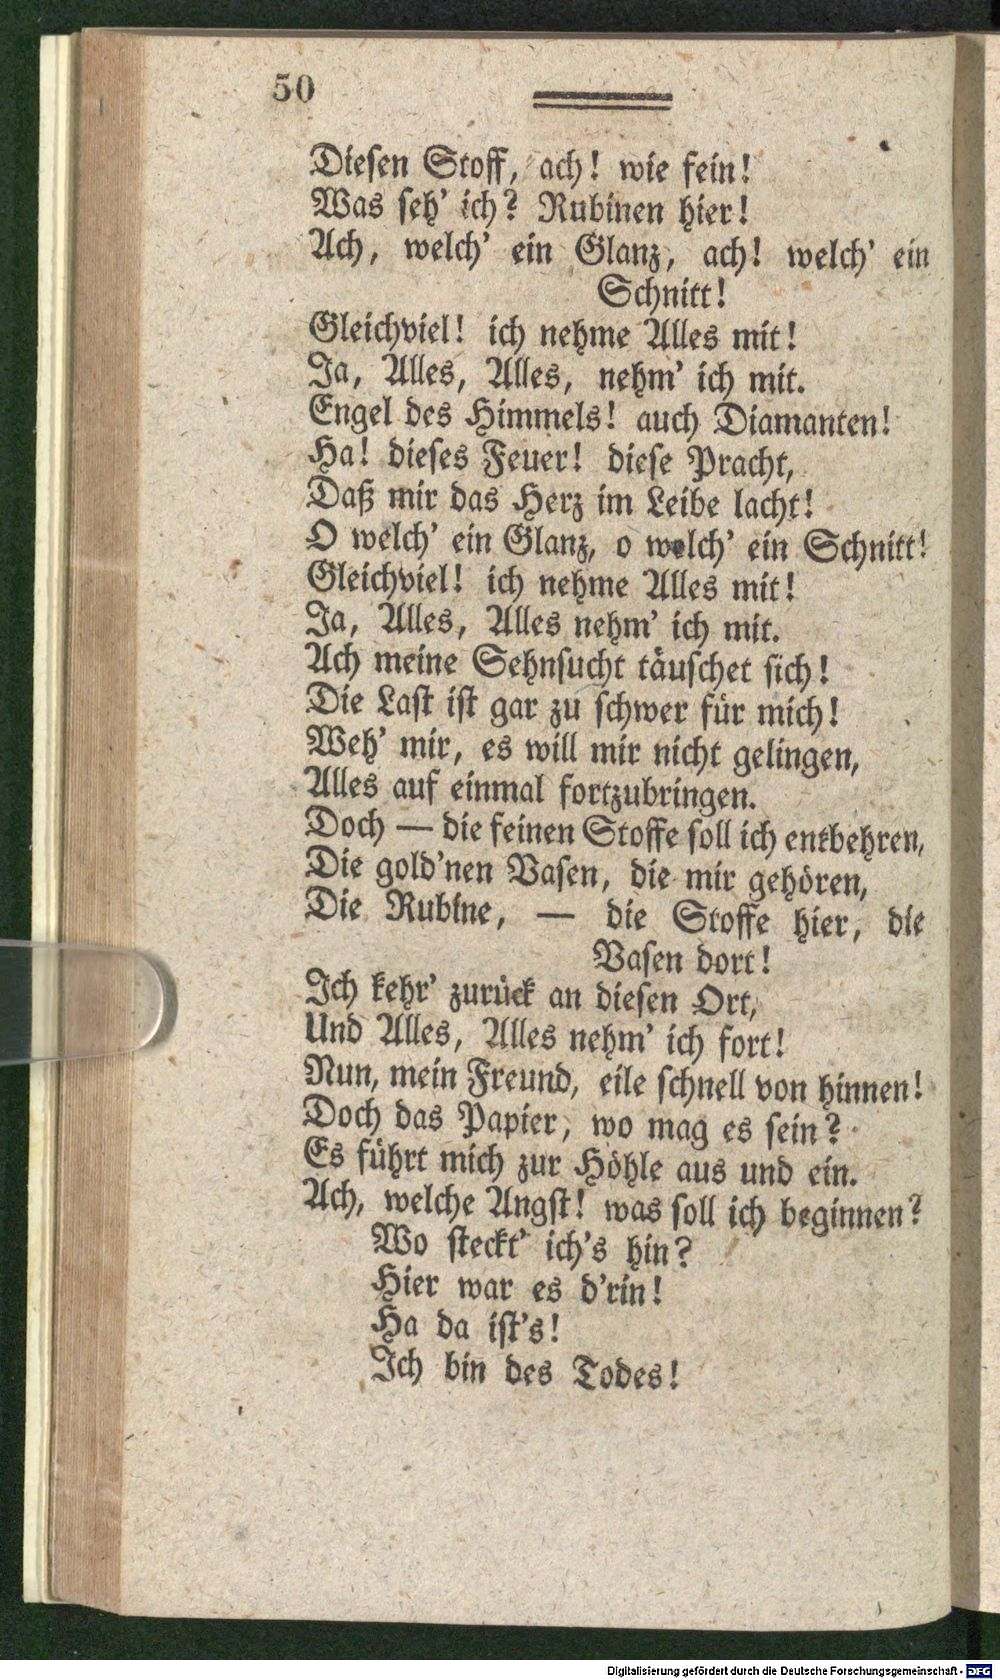 50
Diesen Stoff, ach! wie fein!
Was seh' ich? Rubinen hier!
Ach, welch' ein Glanz, ach! welch' ein
Schnitt!
Gleichviel! ich nehme Alles mit!
Ja, Alles, Alles, nehm' ich mit.
Engel des Himmels! auch Diamanten!
Ha! dieses Feuer! diese Pracht,
Daß mir das Herz im Leibe lacht!
O welch' ein Glanz, o welch' ein Schnitt!
Gleichviel! ich nehme Alles mit!
Ja, Alles, Alles nehm' ich mit.
Ach meine Sehnsucht täuschet sich!
Die Last ist gar zu schwer für mich!
Weh' mir, es will mir nicht gelingen,
Alles auf einmal fortzubringen.
Doch — die feinen Stoffe soll ich entbehren,
Die gold'nen Vasen, die mir gehören,
Die Rubine, — die Stoffe hier, die
Vasen dort!
Ich kehr' zurück an diesen Ort,
Und Alles, Alles nehm' ich fort!
Nun, mein Freund, eile schnell von hinnen!
Doch das Papier, wo mag es sein?
Es führt mich zur Höhle aus und ein.
Ach, welche Angst! was soll ich beginnen?
Wo steckt' ich's hin?
Hier war es d'rin!
Ha da ist's!
Ich bin des Todes!
Digitalisierung gefördert durch die Deutsche Forschungsgemeinschaft - DFG